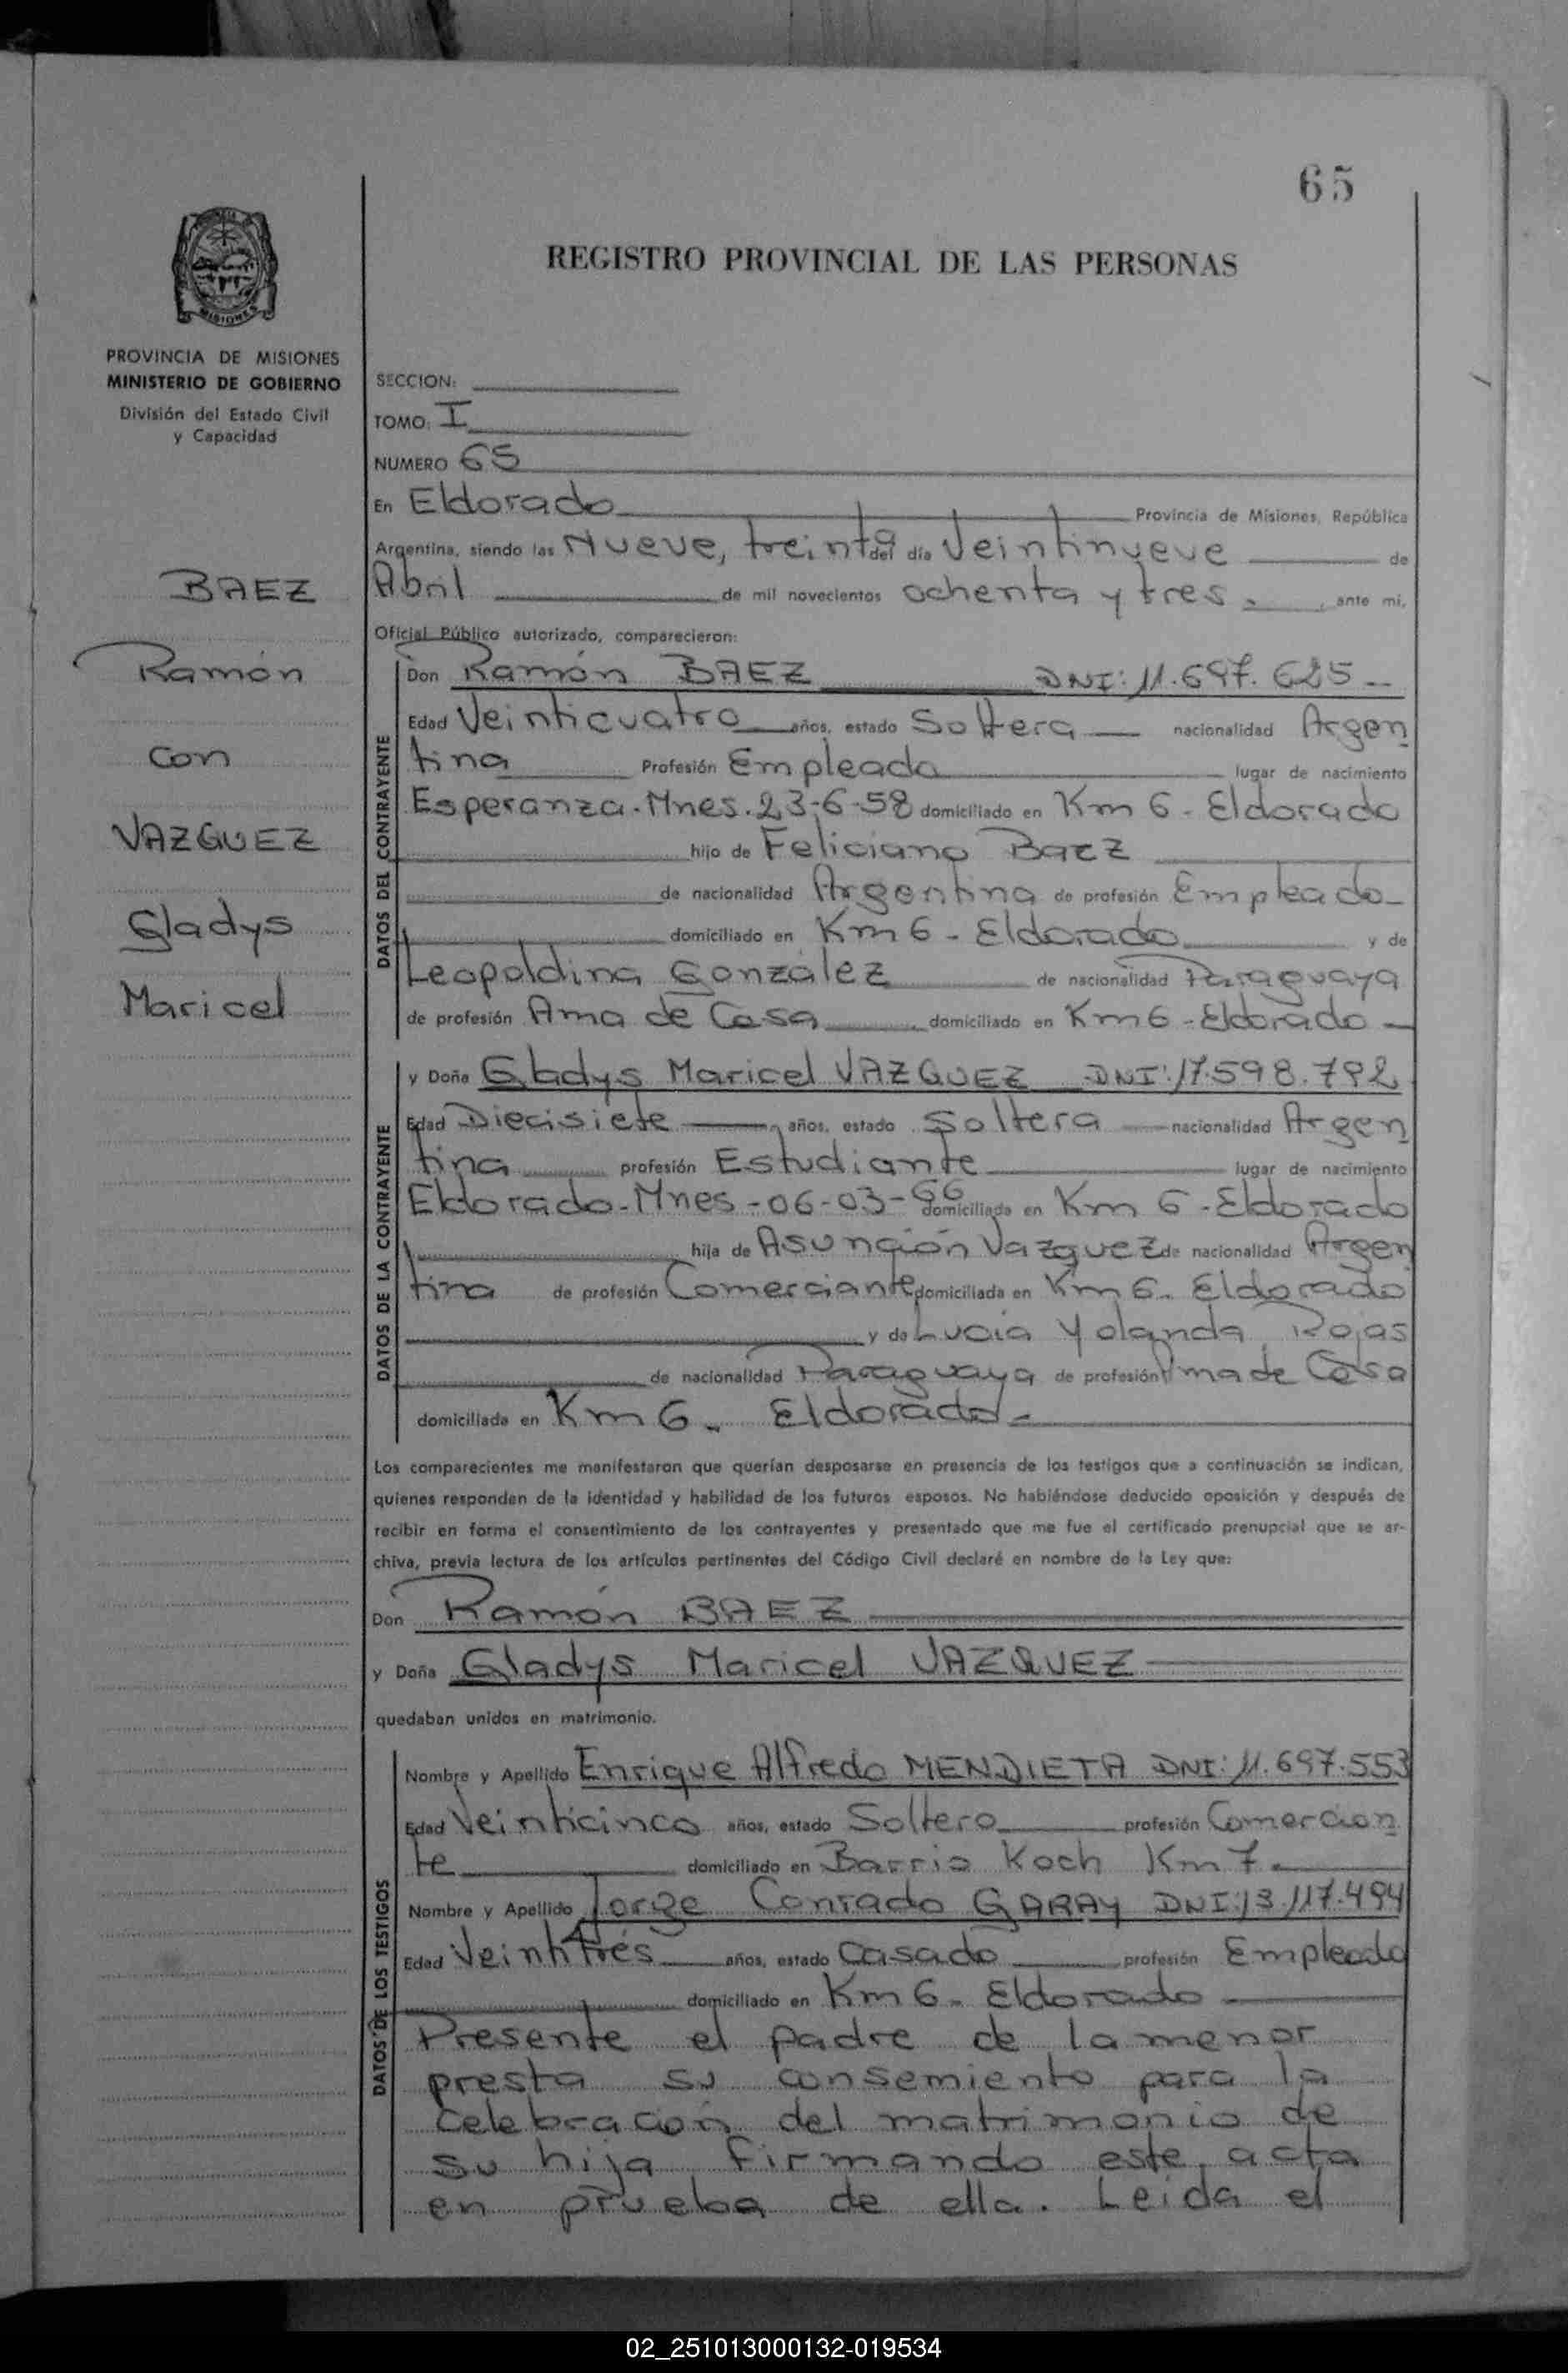 65
REGISTRO PROVINCIAL DE LAS PERSONAS
MISIONES
PROVINCIA DE MISIONES
MINISTERIO DE GOBIERNO
División del Estado Civil
y Capacidad
SECCION:
TOMO: I
NUMERO 65
En Eldorado Provincia de Misiones, República
Argentina, siendo las Nueve, treinta del día Veintinueve de
Abril de mil novecientos ochenta y tres. , ante mi,
Oficial Público autorizado, comparecieron:
BAEZ
Ramón
con
VAZQUEZ
Gladys
Maricel
DATOS DEL CONTRAYENTE
Don Ramón BAEZ DNI: 11.697.625 --
Edad Veinticuatro años, estado Soltera nacionalidad Argen
tina Profesión Empleado lugar de nacimiento
Esperanza. Mnes. 23-6-58 domiciliado en Km 6 - Eldorado
hijo de Feliciano Baez
de nacionalidad Argentina de profesión Empleado
domiciliado en Km 6 - Eldorado y de
Leopoldina González de nacionalidad Paraguaya
de profesión Ama de Casa domiciliado en Km 6 - Eldorado
DATOS DE LA CONTRAYENTE
y Doña Gladys Maricel VAZQUEZ DNI: 17.598.792
Edad Diecisiete años, estado Soltera nacionalidad Argen
tina profesión Estudiante lugar de nacimiento
Eldorado - Mnes - 06-03-66 domiciliada en Km 6 - Eldorado
hija de Asunción Vazquez de nacionalidad Argen
tina de profesión Comerciante domiciliada en Km 6. Eldorado
y de Lucia Yolanda Rojas
de nacionalidad Paraguaya de profesión Ama de Casa
domiciliada en Km 6. Eldorado.
Los comparecientes me manifestaron que querían desposarse en presencia de los testigos que a continuación se indican,
quienes responden de la identidad y habilidad de los futuros esposos. No habiéndose deducido oposición y después de
recibir en forma el consentimiento de los contrayentes y presentado que me fue el certificado prenupcial que se ar-
chiva, previa lectura de los artículos pertinentes del Código Civil declaré en nombre de la Ley que:
Don Ramón BAEZ
y Doña Gladys Maricel VAZQUEZ
quedaban unidos en matrimonio.
DATOS DE LOS TESTIGOS
Nombre y Apellido Enrique Alfredo MENDIETA DNI: 11.697.553
Edad Veinticinco años, estado Soltero profesión Comercian
te domiciliado en Barrio Koch Km 7.
Nombre y Apellido Jorge Conrado GARAY DNI: 13.117.494
Edad Veintitrés años, estado Casado profesión Empleado
domiciliado en Km 6. Eldorado
Presente el padre de la menor
presta su consemiento para la
celebracion del matrimonio de
su hija firmando este acta
en prueba de ella. Leida el
02_251013000132-019534